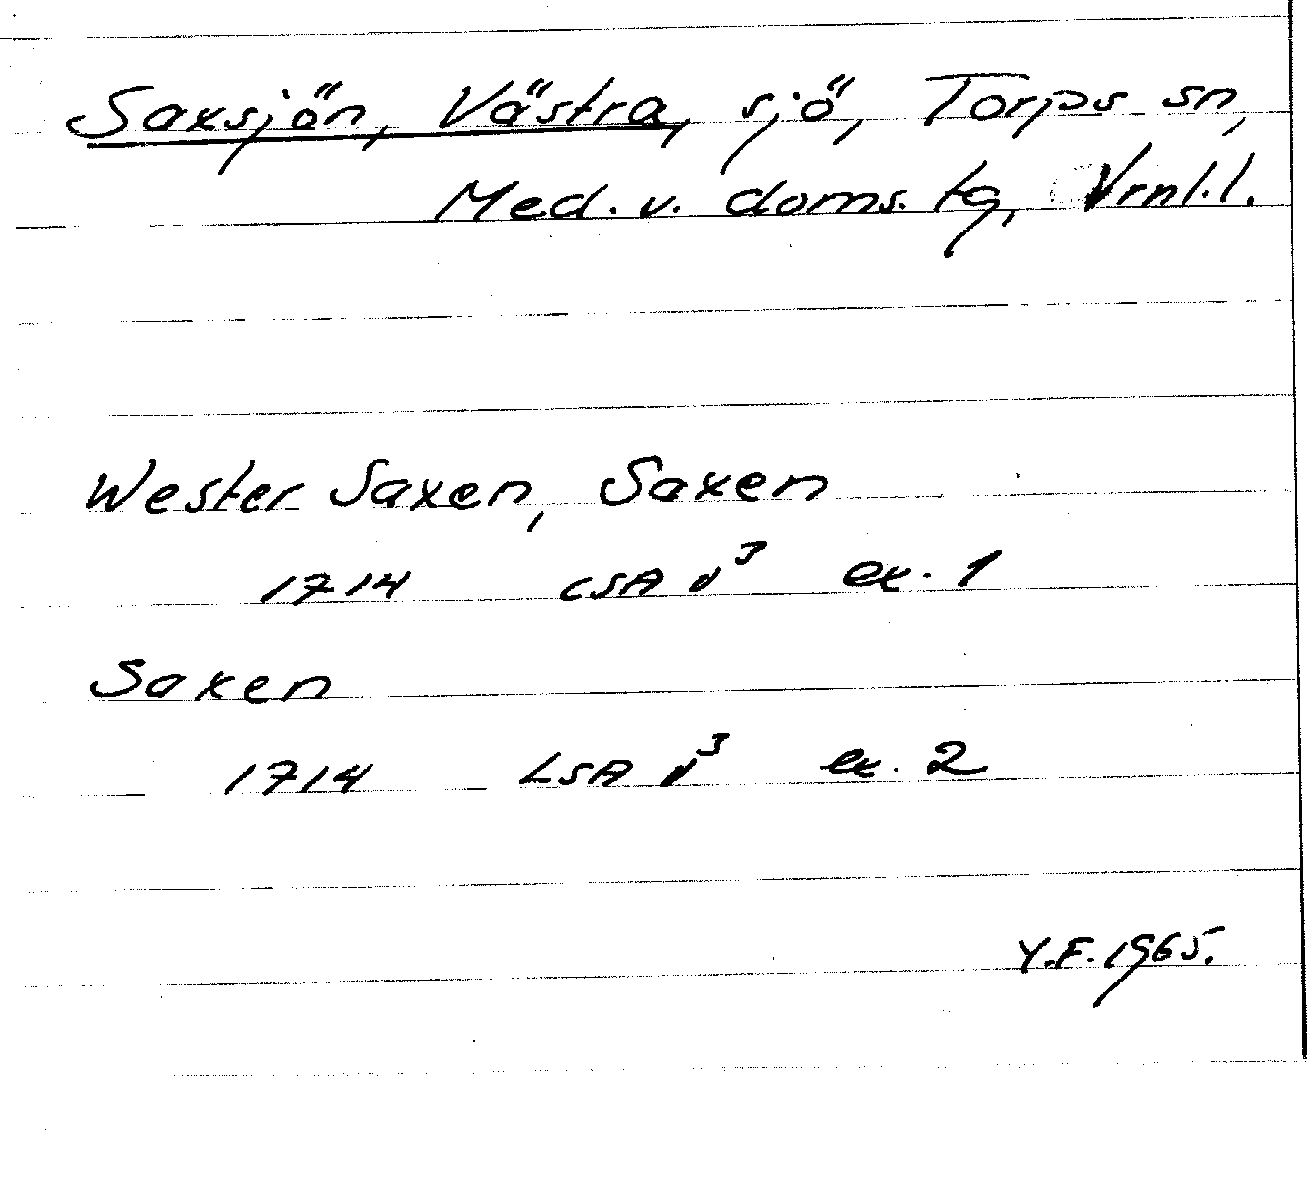 Saxsjön, Västra, sjö, Torps sn,
Med. v. doms. tg, Vrml.l.
Wester Saxen, Saxen
1714 LSA v³ ex. 1
Saxen
1714 LSA v³ ex. 2
Y.F. 1965.